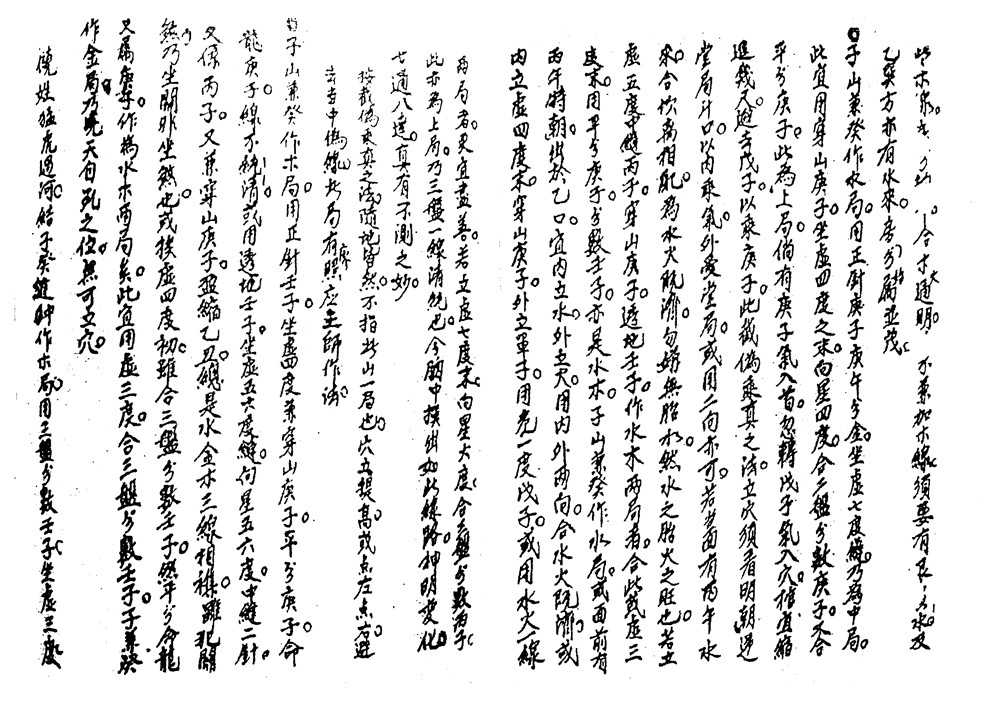 此木泉 合才通明 不兼加木線須要有艮 水及
乙巽方亦有水來 分屬並茂
子山兼癸作水局用正針庚子庚午分金坐虛七度 乃為中局
此宜用穿山庚子坐虛四度之末向星四度合二盤分數庚子不合
平分庚子此為上局倘有庚子氣入首忽轉戊子氣入穴棺宜縮
退幾尺避去戊子以乘庚子此截偽乘真之法立穴須看明朝迎
堂局斗口以內乘氣外受堂局或用二向亦可若当面有丙午水
來合坎离相配為水火既濟勿嫌無胎水然水之胎火之旺也若立
虛五度中縫丙子穿山庚子透地壬子作水木兩局者合此或虛三
度末用平分庚子分數壬子亦是水木子山兼癸作水局或面前有
丙午特朝出於乙口宜內立水外立火用內外兩向合水火既濟或
內立虛四度末穿山庚子外立單子用危一度戊子或用水火一線
兩局者更宜盡善若立虛七度末向星六度合三盤分數丙子
此亦為上局乃三盤一線清純也令胸中撰出如此線路神明变化
七通八達真有不測之妙
按截偽乘真之法隨地皆然不指此山一局也穴立提高或点左点右避
去其中偽線此局有驗應主師作 
子山兼癸作木局用正針壬子坐虛四度兼穿山庚子平分庚子命
龍庚子線不純清或用透地壬子坐虛五六度縫向星五六度中縫二針
又係丙子又兼穿山庚子盈縮乙丑總是水金木三線相襍雖犯關
煞乃坐關非坐煞也或挨虛四度初雖合三盤分數壬子然平分命龍
又屬庚子作為水木兩局矣此宜用虛三度合三盤分數壬子子兼癸
作金局乃先天自死之位無可立穴
饒姓猛虎過河 子癸縫 作木局用三盤分數壬子坐虛三度